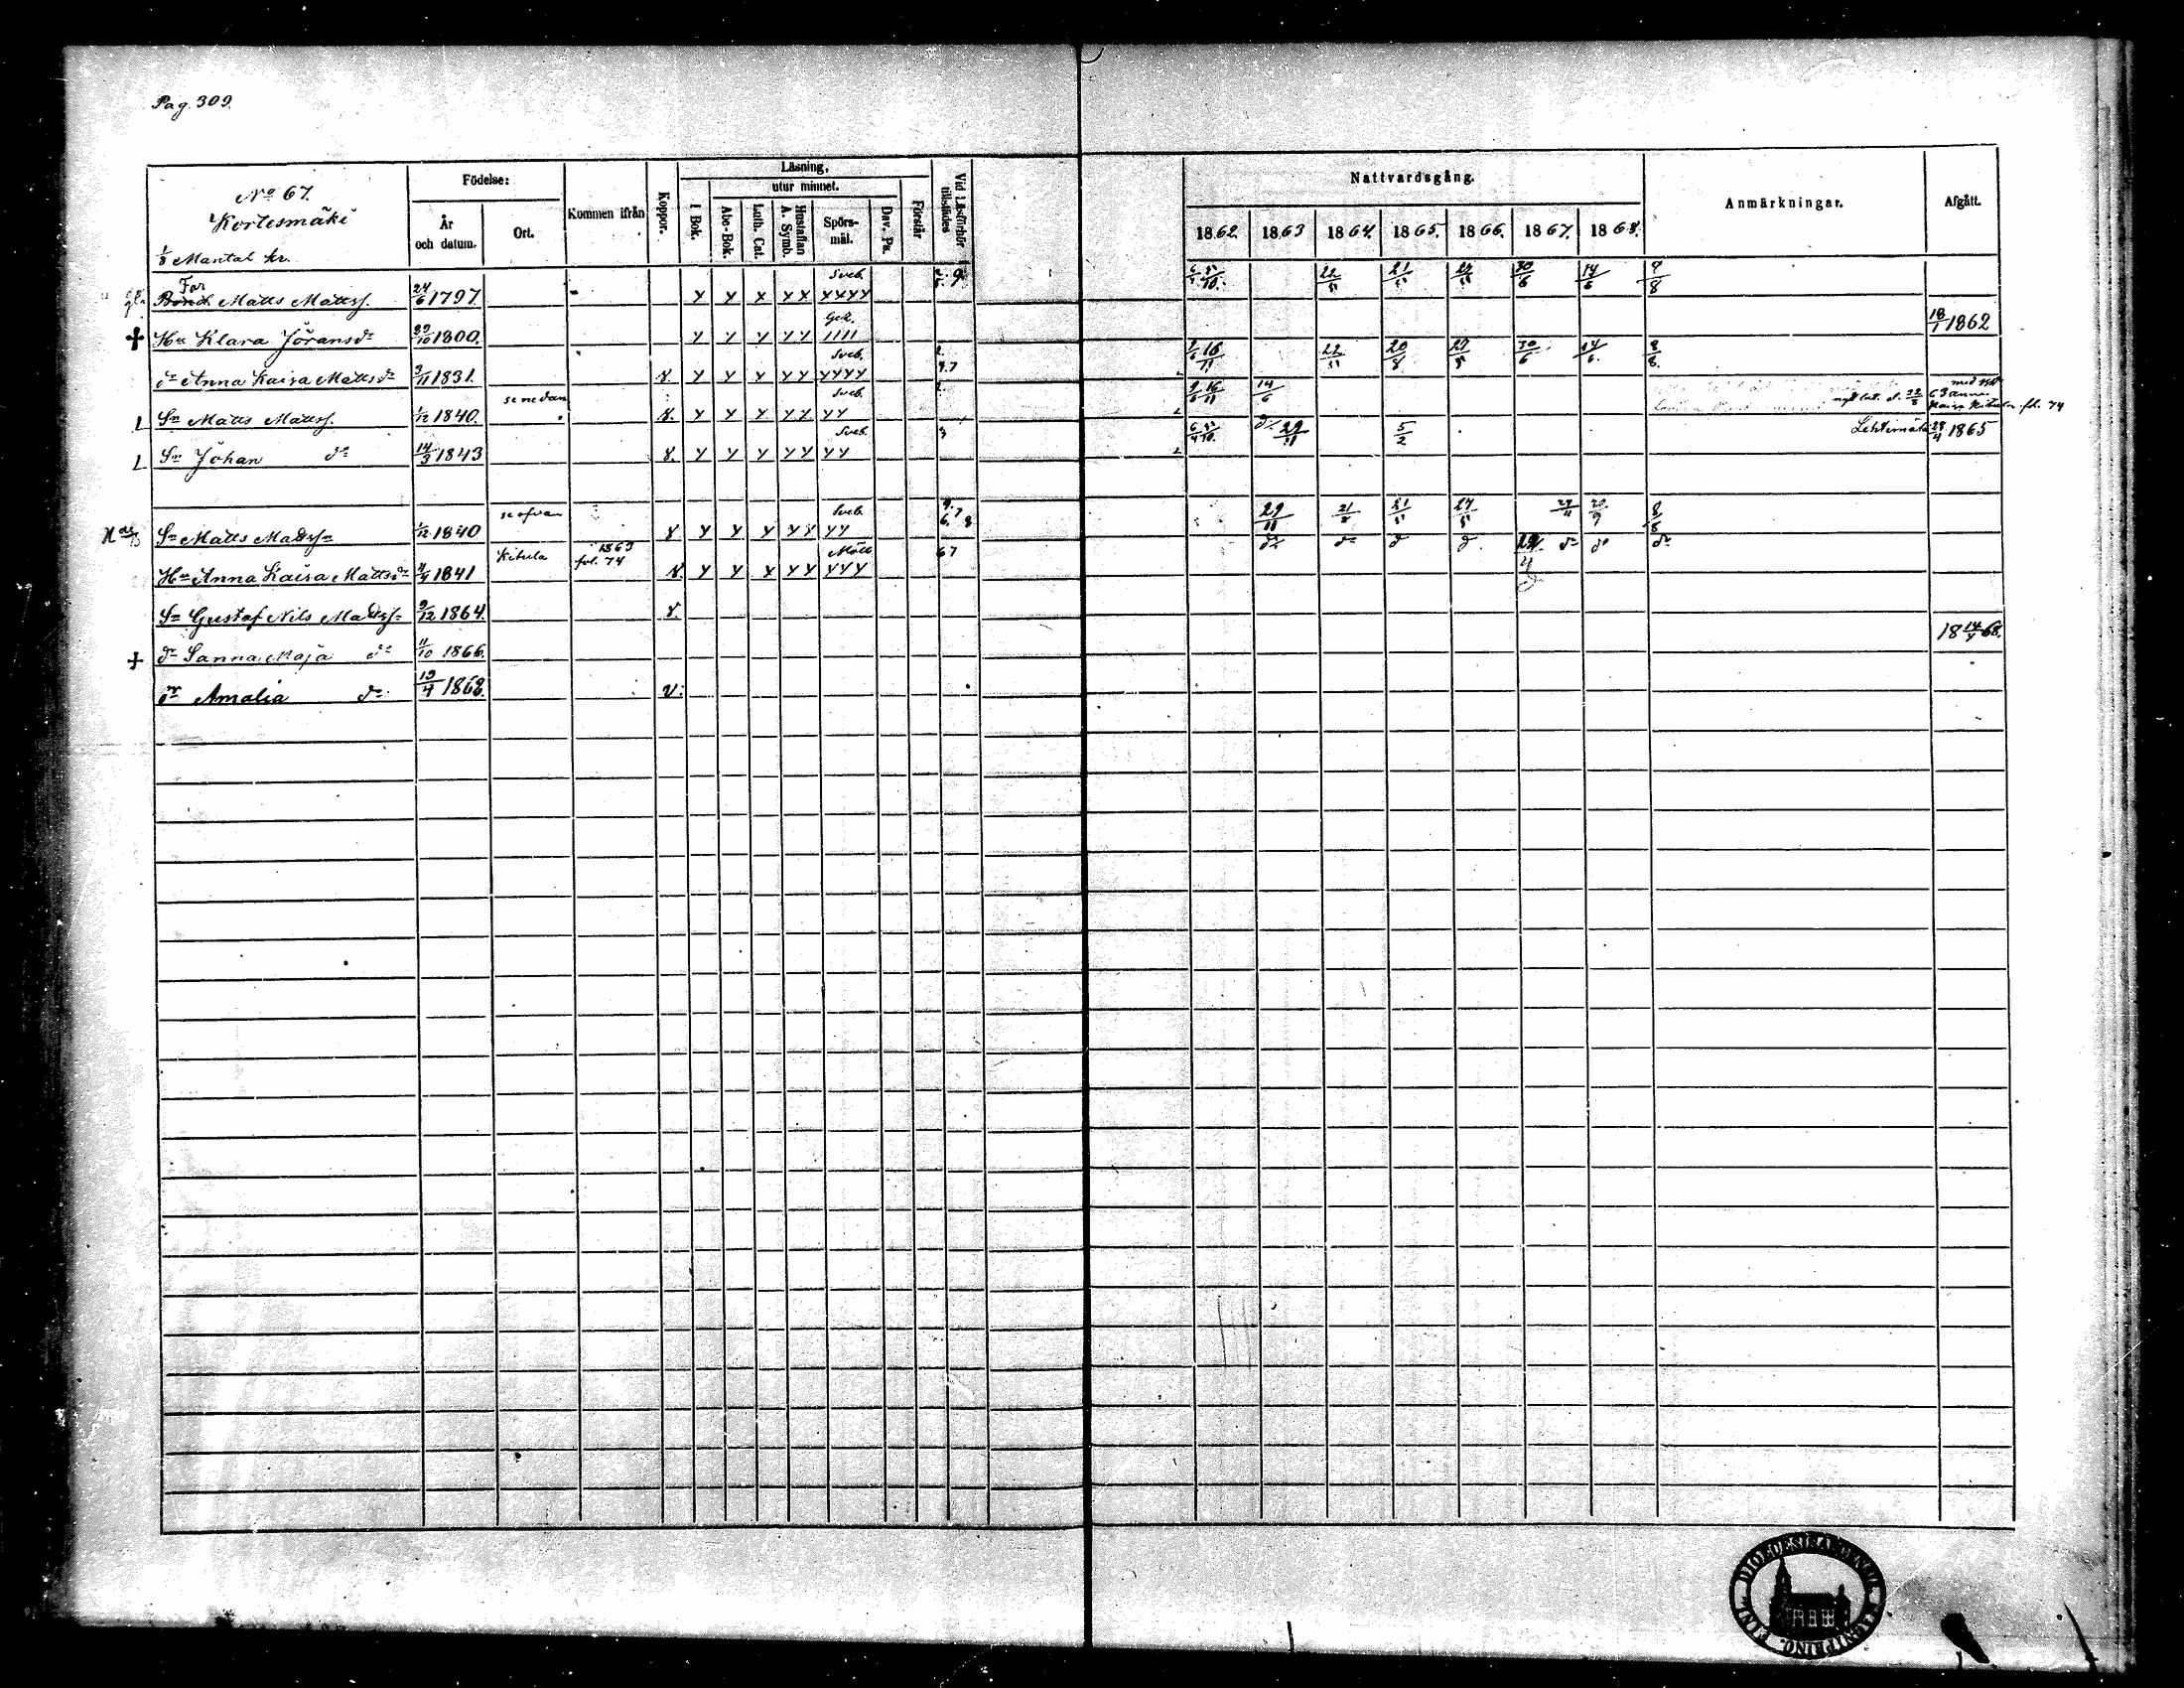 Pag. 309.
No 67.
Kortesmäki
1/8 Mantal kr.
Födelse:
År och datum.
Ort.
Kommen ifrån
Koppor.
Läsning,
utur minnet.
I Bok.
Abc-Bok.
Luth. Cat.
Hustaflan A. Symb.
Spörs-mål.
Dav. Ps.
Förstår
Vid Läsförhör tillstädes
Nattvardsgång.
1862. 1863 1864. 1865. 1866. 1867. 1868.
Anmärkningar.
Afgått.
Far
Bond Matts Mattss. 24/6 1797. Y Y X X X Sveb. XXXX 22/5 21/5 27/5 30/6 14/6 8/8
+ Hu Klara Jöransdr 29/10 1800. Y Y X Y Y Gek. 1111 18/1 1862
dr Anna Kaisa Mattsdr 3/11 1831. Y. Y Y X X X Sveb. YYYY 9/6 16/11 22/5 20/8 27/5 30/6 14/6 8/8
Sn Matts Mattss. 1/12 1840. se nedan Y. Y Y X X X Sveb. YY 9/6 16/11 14/6 nyttat. d. 22/8 63 Anna Kaisa Kihula fol. 74
Sn Johan do 14/3 1843 Y. Y Y Y Y Y Sveb. YY 3 do 29/11 5/2 Lehtimäki 28/4 1865
Sn Matts Mattssn 1/12 1840 se ofvan Y Y Y Y X X Sveb. YY 29/11 21/8 21/5 27/5 27/11 20/9 8/8
Hu Anna Kaisa Mattsdr 4/4 1841 Kihula 1863 fol. 74 Y. Y Y X X X Mått YYY 67 do do do do do do do
Sn Gustaf Nils Mattss. 9/12 1864. Y.
+ dr Sanna Maja do 11/10 1866. 18 14/4 68.
dr Amalia do 19/4 1868. V.